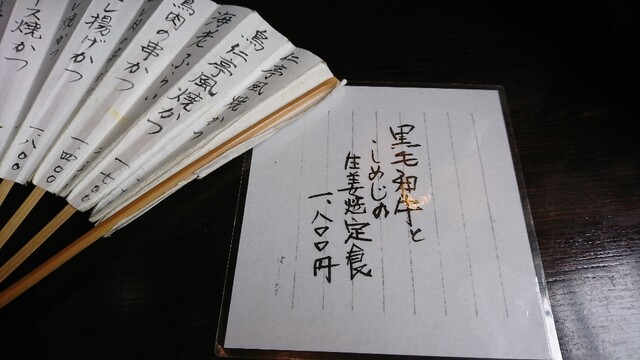 黒毛和牛と
しめじの
生姜焼定食
一、八〇〇円
仁亭風焼かつ
海老ふらい
鳥仁亭風焼かつ
一、七〇〇
鳥肉の串かつ
一、四〇〇
レ揚げかつ
一、八〇〇
ース焼かつ